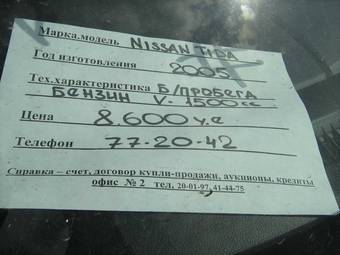 Марка.модель NISSAN TIDA
Год изготовления 2005
Тех.характеристика Б/ПРОБЕГА
БЕНЗИН V-1500 cc
Цена 8.600 у.е
Телефон 77-20-42
Справка – счет, договор купли-продажи, аукционы, кредиты
офис № 2 тел. 20-01-97, 41-44-75